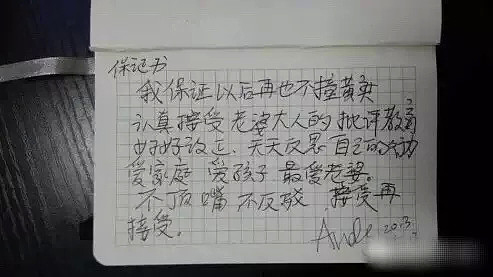 保证书
我保证以后再也不撞黄灯
认真接受老婆大人的批评教育
好好改正。天天反思自己的行为
爱家庭 爱孩子 最爱老婆。
不顶嘴 不反驳 接受再
接受。
Andy 2013